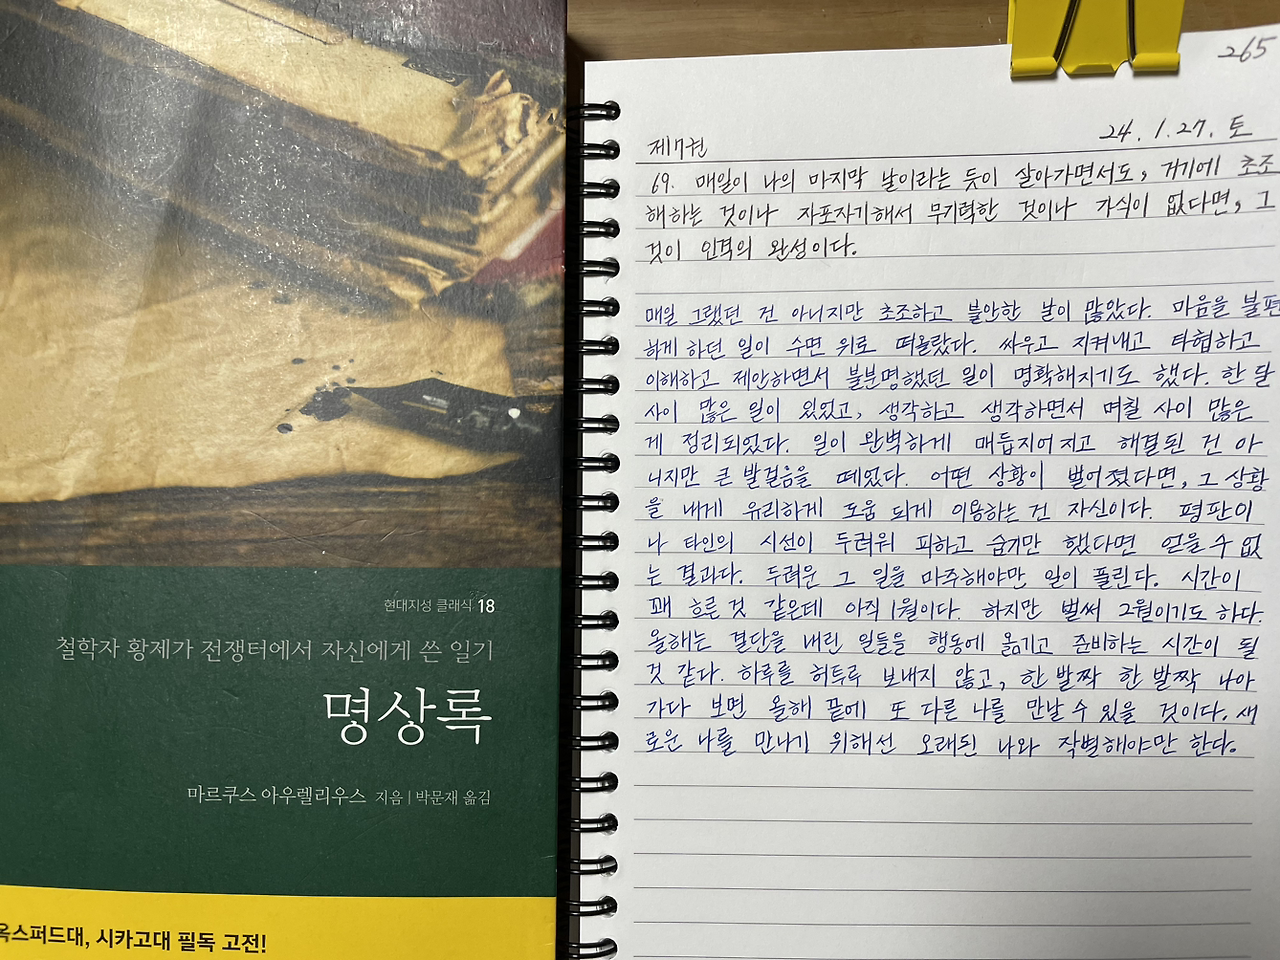 현대지성 클래식 18
철학자 황제가 전쟁터에서 자신에게 쓴 일기
명상록
마르쿠스 아우렐리우스 지음 | 박문재 옮김
옥스퍼드대, 시카고대 필독 고전!
265
24. 1. 27. 토
제7권
69. 매일이 나의 마지막 날이라는 듯이 살아가면서도, 거기에 초조
해하는 것이나 자포자기해서 무기력한 것이나 가식이 없다면, 그
것이 인격의 완성이다.
매일 그랬던 건 아니지만 초조하고 불안한 날이 많았다. 마음을 불편
하게 하던 일이 수면 위로 떠올랐다. 싸우고 지켜내고 타협하고
이해하고 제안하면서 불분명했던 일이 명확해지기도 했다. 한 달
사이 많은 일이 있었고, 생각하고 생각하면서 며칠 사이 많은
게 정리되었다. 일이 완벽하게 매듭지어지고 해결된 건 아
니지만 큰 발걸음을 떼었다. 어떤 상황이 벌어졌다면, 그 상황
을 내게 유리하게 도움 되게 이용하는 건 자신이다. 평판이
나 타인의 시선이 두려워 피하고 숨기만 했다면 얻을 수 없
는 결과다. 두려운 그 일을 마주해야만 일이 풀린다. 시간이
꽤 흐른 것 같은데 아직 1월이다. 하지만 벌써 2월이기도 하다.
올해는 결단을 내린 일들을 행동에 옮기고 준비하는 시간이 될
것 같다. 하루를 허투루 보내지 않고, 한 발짝 한 발짝 나아
가다 보면 올해 끝에 또 다른 나를 만날 수 있을 것이다. 새
로운 나를 만나기 위해선 오래된 나와 작별해야만 한다.